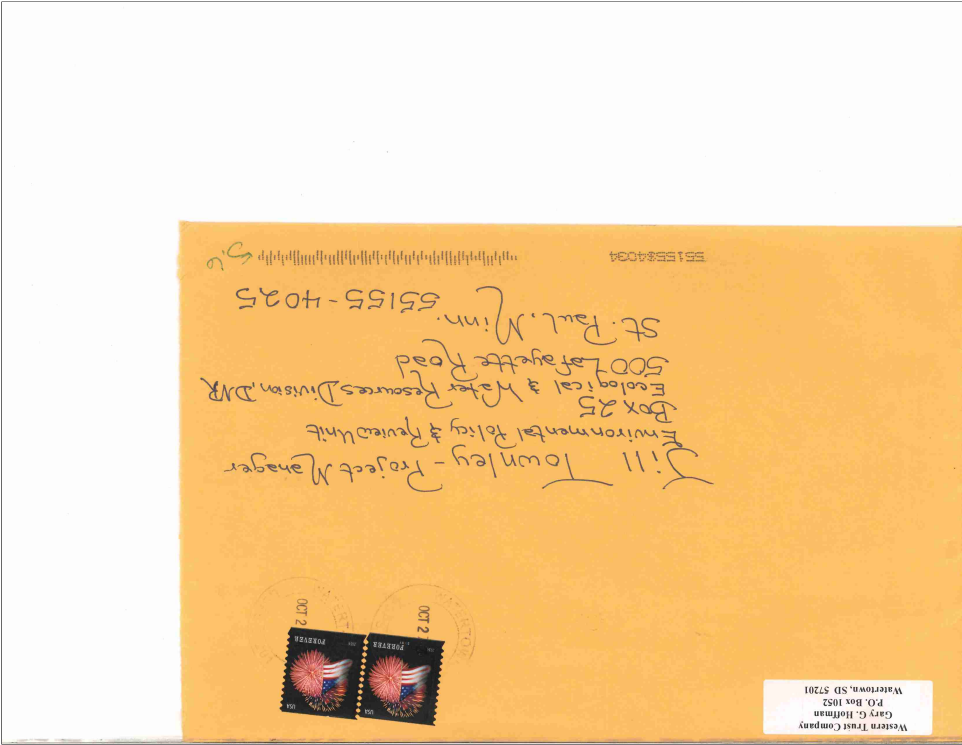 Western Trust Company
Gary G. Hoffman
P.O. Box 1052
Watertown, SD 57201
USA
FOREVER
USA
FOREVER
OCT 2
OCT 2
Jill Townley - Project Manager
Environmental Policy & Review Unit
Box 25
Ecological & Water Resources Division, DNR
500 Lafayette Road
St. Paul, Minn.
55155-4025
55155$4034